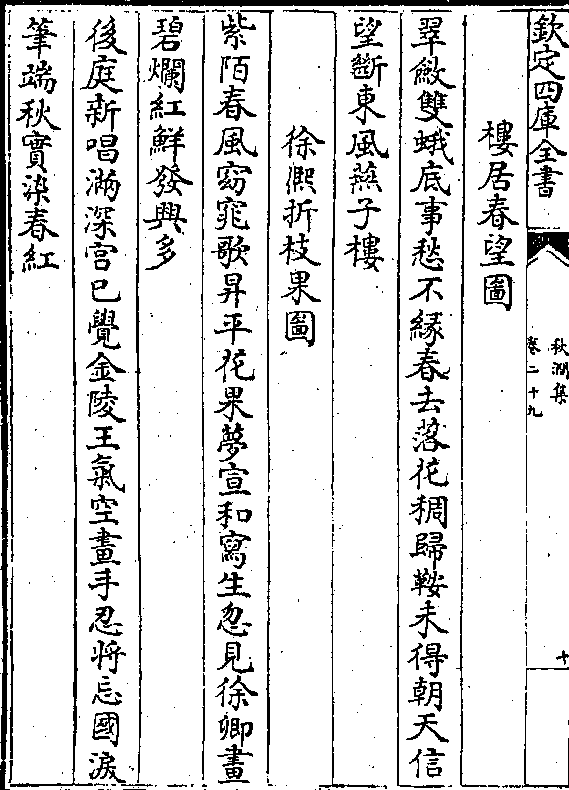 欽定四庫全書
秋澗集
卷二十九
十
樓居春望圖
翠斂雙蛾底事愁不緣春去落花稠歸鞍未得朝天信
望斷東風燕子樓
徐熈折枝果圖
紫陌春風窈窕歌昇平花果夢宣和寫生忽見徐卿畫
碧爛紅鮮發興多
後庭新唱滿深宫已覺金陵王氣空畫手忍将忘國淚
筆端秋實染春紅